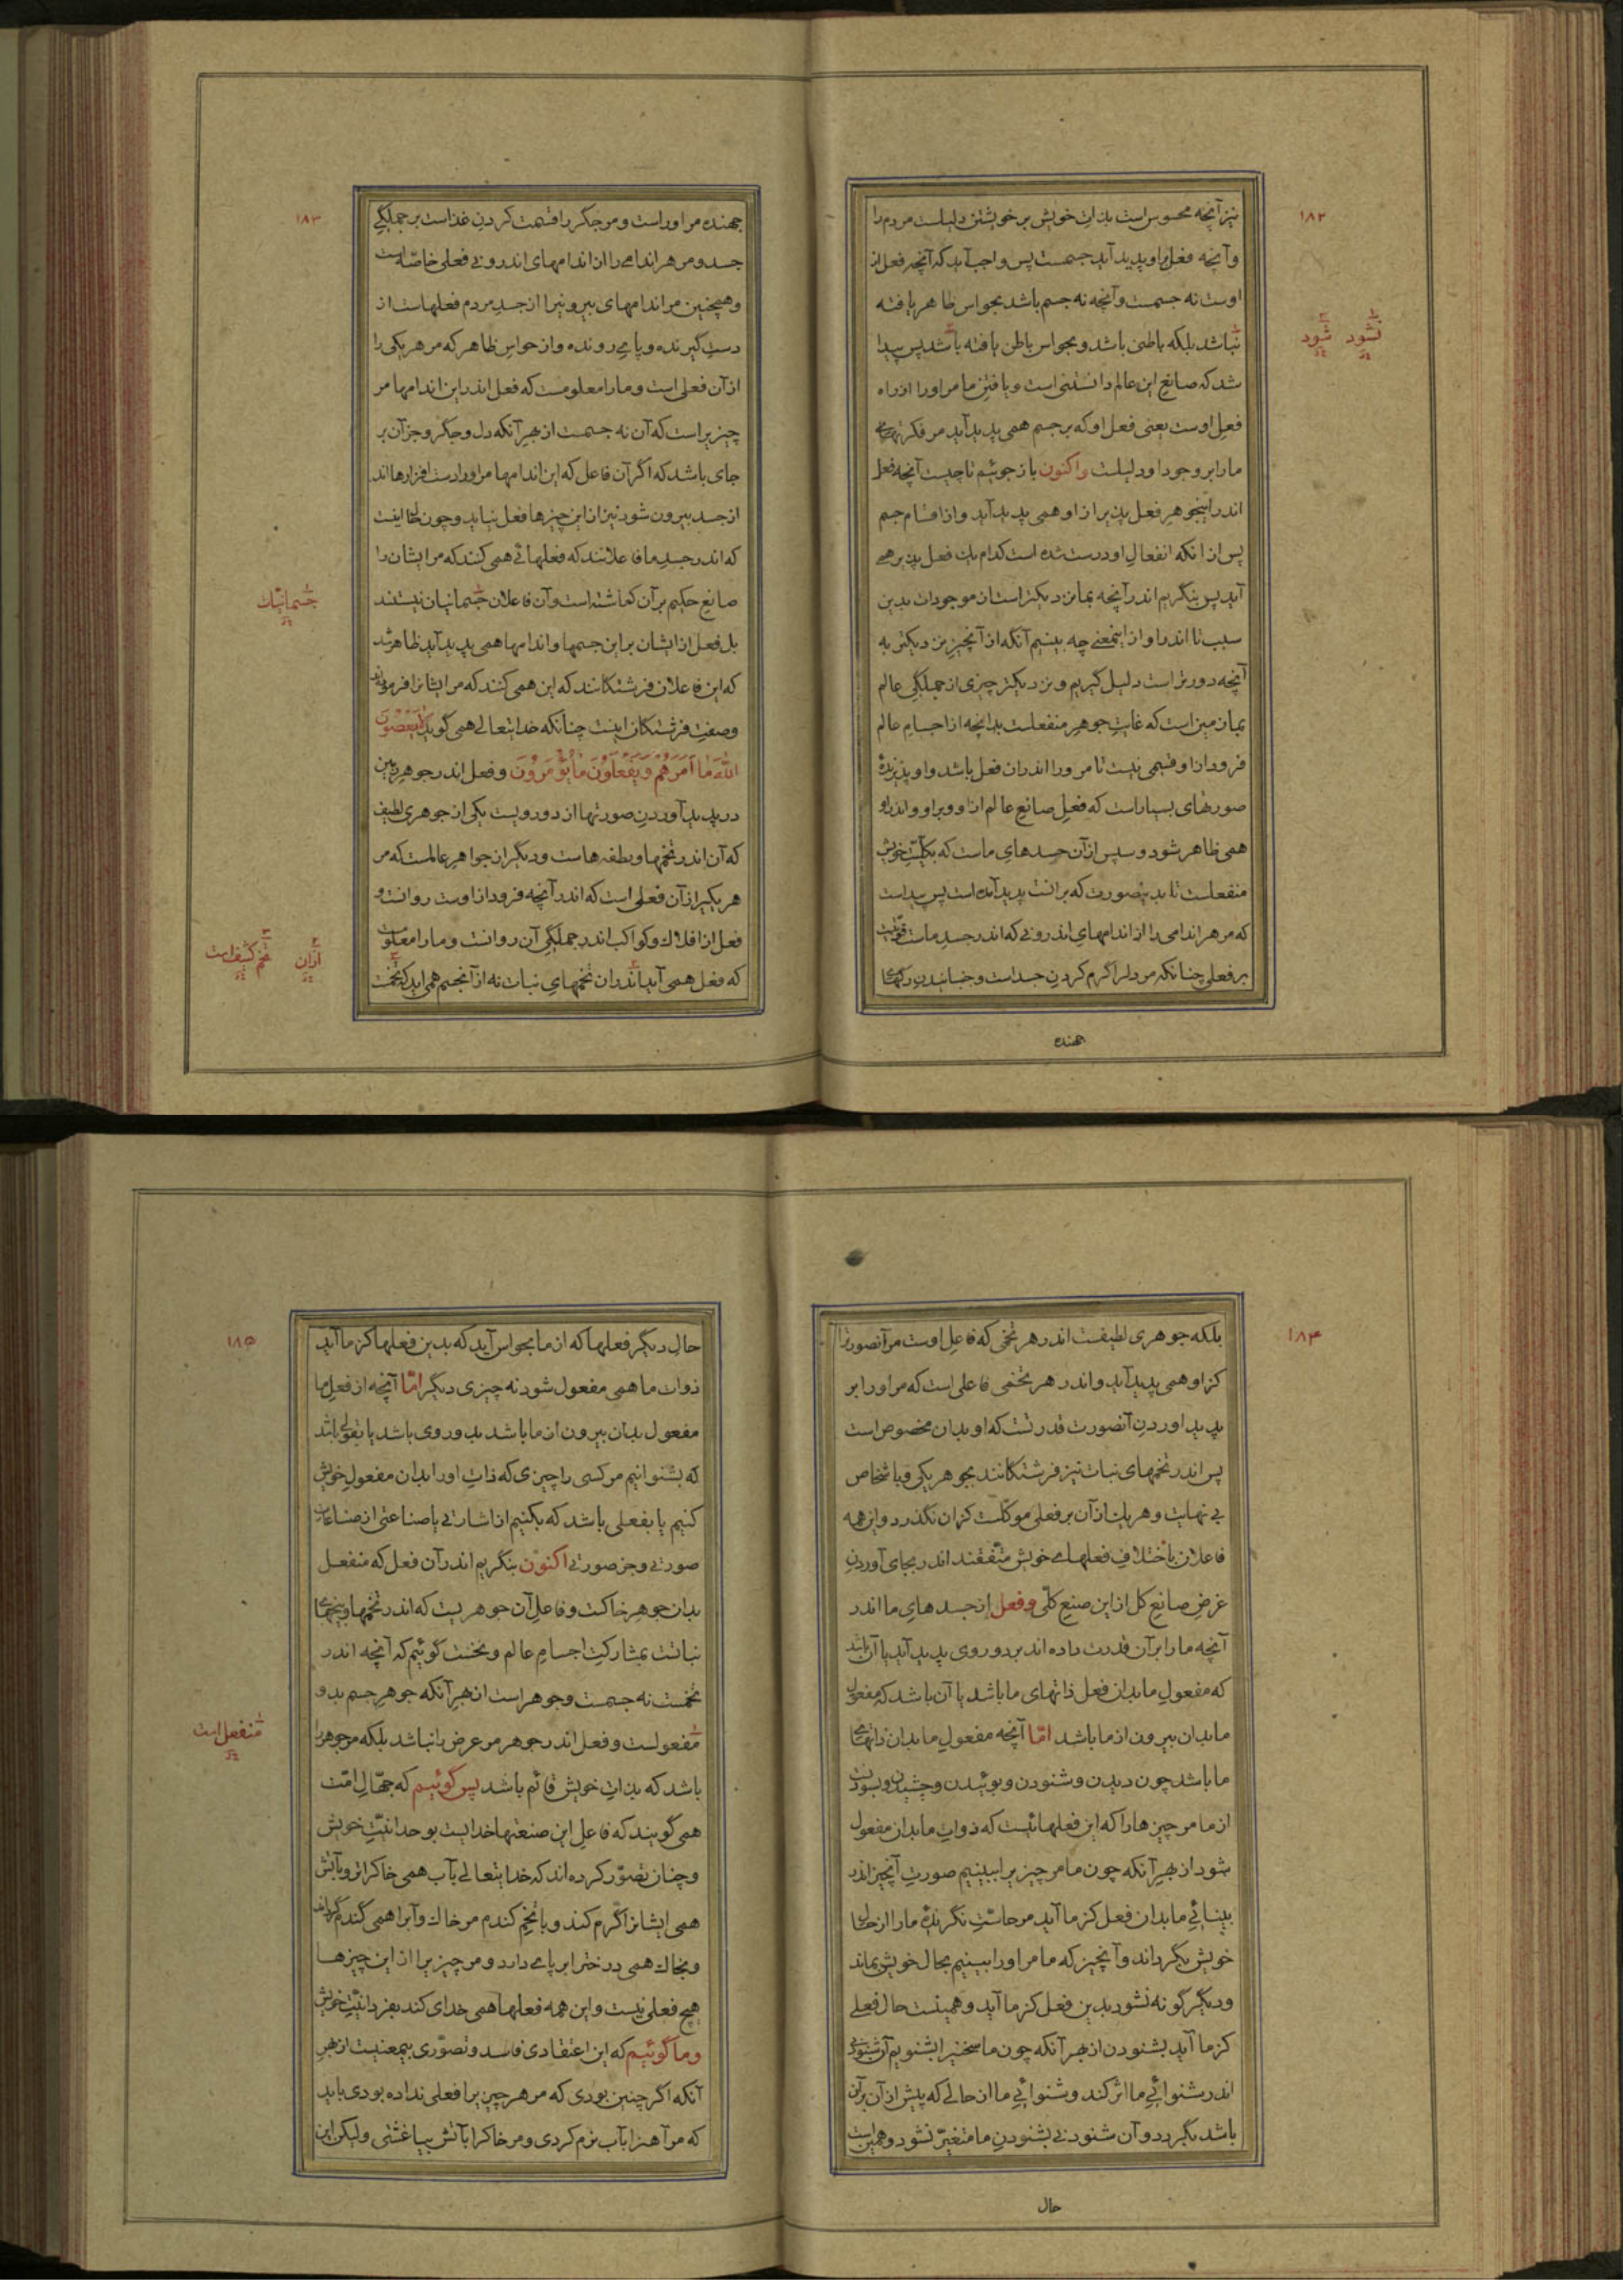 ۱۸۲
نیز آنچه محسوس است بذات خویش بر خویشتن دلیلست مردم را
وآنچه فعل بر او پدید آید جسمست پس واجب آید که آنچه فعل از
اوست نه جسمست وآنچه نه جسم باشد بحواس ظاهر یافته
نباشد بلکه باطنی باشد و بحواس باطن یافته باشد پس پیدا
نشود شود
شد که صانع این عالم دانستنی است ویافتن ما مر اورا از راه
فعل اوست یعنی فعل او که بر جسم همی پدید آید مر فکرتهای
مارا بر وجود او دلیلست واکنون باز جوئیم تا چیست آنچه فعل
اندر اینجوهر فعل پذیر از او همی پدید آید واز اقسام جسم
پس از آنکه انفعال او درست شده است کدام یک فعل پذیر همی
آید پس بنگریم اندر آنچه بما نزدیکتر است از موجودات بدین
سبب تا اندر او از اینمعنی چه بینیم آنگه از آنچیز نزدیکتر به
آنچه دورتر است دلیل گیریم و نزدیکتر چیزی از جملگی عالم
بما زمین است که غایت جوهر منفعلست بدانچه از اجسام عالم
فرود از او قسمی نیست تا مر ورا اندران فعل باشد واو پذیرندهٔ
صورتهای بسیار است که فعل صانع عالم از او و بر او و اندر او
همی ظاهر شود و سپس از آن جسدهای ماست که بکلیّت خویش
منفعلست تا بدینصورت که بر آنست پدید آمده است پس پیداست
که مر هر اندامی را از اندامهای اندرونی که اندر جسد ماست قوّتیست
بر فعلی چنانکه مر دلرا گرم کردن جسد است و جنبانیدن رگهای
جهنده
۱۸۳
جهنده مر اوراست ومر جگر را قسمت کردن غذاست بر جملگی
جسد ومر هر اندامی را از اندامهای اندرونی فعلی خاصّه است
وهمچنین مر اندامهای بیرونیرا از جسد مردم فعلهاست از
دست گیرنده وپای رونده واز حواس ظاهر که مر هر یکی را
از آن فعلی است وما را معلومست که فعل اندر این اندامها مر
چیزیراست که آن نه جسمست از بهر آنکه دل وجگر وجز آن بر
جای باشد که اگر آن فاعل که این اندامها مر اورا دست افزارها اند
از جسد بیرون شود نیز از این چیزها فعل نیاید وچون حال اینست
که اندر جسد ما فاعلانند که فعلهائی همی کنند که مر ایشان را
صانع حکیم بر آن گماشته است وآن فاعلان جسمانیان نیستند
جسمانیک
بل فعل از ایشان بر این جسمها واندامها همی پدید آید ظاهر شد
که این فاعلان فرشتگانند که این همی کنند که مر ایشانرا فرمودند
وصفت فرشتگان اینست چنانکه خدایتعالی همی گوید لا یَعْصُونَ
اللّهَ ما اَمَرَهُم وَ یَفْعَلوُنَ ما یُؤْمَروُنَ وفعل اندر جوهر زمین
در پدید آوردن صورتها از دو رویست یکی از جوهری لطیف
که آن اندر تخمها ونطفه هاست و دیگر از جواهر عالمست که مر
هر یکیرا از آن فعلی است که اندر آنچه فرود از اوست روانست و
فعل از افلاک وکواکب اندر جملگی آن روانست وما را معلومست
که فعل همی آید اندران تخمهای نبات نه از آنجسم همی آید که تخمست
ازان تخم کثیف است
۱۸۴
بلکه جوهری لطیفست اندر هر تخمی که فاعل اوست مر آنصورترا
کز او همی پدید آید واندر هر تخمی فاعلی است که مر اورا بر
پدید آوردن آنصورت قدرتست که او بدان مخصوص است
پس اندر تخمهای نبات نیز فرشتگانند بجوهر یکی و باشخاص
بی نهایت وهر یک از آن بر فعلی موکّلست کزان نگذرد واین همه
فاعلان باختلاف فعلهای خویش متّفقند اندر بجای آوردن
غرض صانع کل از این صنع کلّی وفعل از جسدهای ما اندر
آنچه ما را بر آن قدرت داده اند بر دو روی پدید آید یا آن باشد
که مفعول ما بدان فعل ذاتهای ما باشد یا آن باشد که مفعول
ما بدان بیرون از ما باشد امّا آنچه مفعول ما بدان ذاتهای
ما باشد چون دیدن وشنودن وبوئیدن وچشیدن وبسودن
از ما مر چیزهارا که این فعلهائیست که ذوات ما بدان مفعول
شود از بهر آنکه چون ما مر چیزیرا ببینیم صورت آنچیز اندر
بینائی ما بدان فعل کز ما آید مر حاسّت نگرندهٔ ما را از حال
خویش بگرداند وآنچیز که ما مر اورا ببینیم بحال خویش بماند
و دیگر گونه نشود بدین فعل کز ما آید وهمینست حال فعلی
کز ما آید بشنودن از بهر آنکه چون ما سخنیرا بشنویم آن شنودنی
اندر شنوائی ما اثر کند وشنوائی ما از حالی که پیش از آن بر آن
باشد بگردد وآن شنودنی بشنودن ما متغیّر نشود وهمین است
حال
۱۸۵
حال دیگر فعلها که از ما بحواس آید که بدین فعلها کز ما آید
ذوات ما همی مفعول شود نه چیزی دیگر امّا آنچه از فعل ما
مفعول بدان بیرون از ما باشد بدو روی باشد یا بقولی باشد
که بشنوانیم مر کسی را چیزی که ذات اورا بدان مفعول خویش
کنیم یا بفعلی باشد که بکنیم از اشارتی یا صناعتی از صناعات
صورتی وجز صورتی اکنون بنگریم اندر آن فعل که منفعل
بدان جوهر خاکست وفاعل آن جوهریست که اندر تخمها وبیخهای
نباتست بمشارکت اجسام عالم ونخست گوئیم که آنچه اندر
تخمست نه جسمست وجوهر است از بهر آنکه جوهر جسم بدو
مفعولست وفعل اندر جوهر مر عرض را نباشد بلکه مر جوهررا
منفعل است
باشد که بذات خویش قائم باشد پس گوئیم که جهّال امّت
همی گویند که فاعل این صنعتها خدایست بوحدانیّت خویش
وچنان تصوّر کرده اند که خدایتعالی بآب همی خاکرا تر و بآتش
همی ایشانرا گرم کند و با تخم گندم مر خاک وآبرا همی گندم گرداند
وبخاک همی درخترا بر پای دارد ومر چیزیرا از این چیزها
هیچ فعلی نیست واین همه فعلها همی خدای کند بفردانیّت خویش
وما گوئیم که این اعتقادی فاسد وتصوّری بیمعنیست از بهر
آنکه اگر چنین بودی که مر هر چیزیرا فعلی نداده بودی باید
که مر آهنرا بآب نرم کردی ومر خاکرا بآتش بیاغشتی ولیکن این